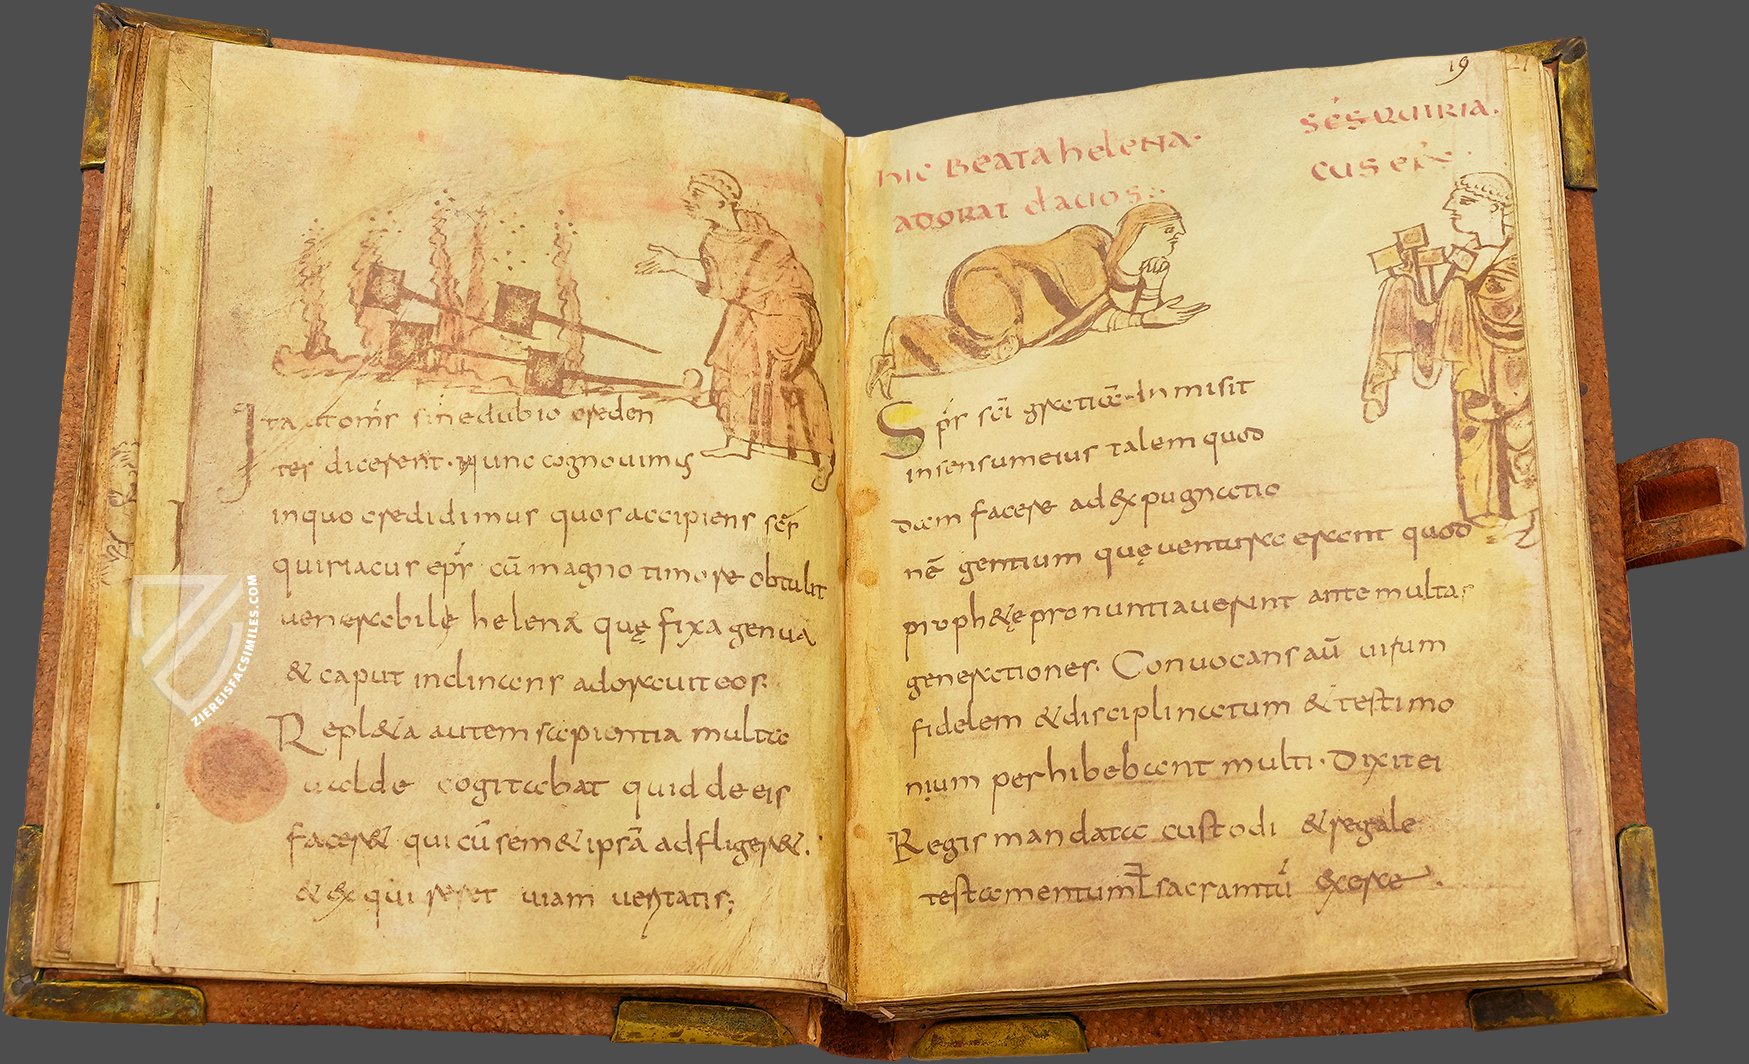 Ita ut om̄s sine dubio creden
tes dicerent. Nunc cognovimus
in quo credidimus quos accipiens sc̄s
quiriacus ep̄s cū magno timore obtulit
venerabile helenæ quę fixa genua
& caput inclinans adoravit eos.
Repl&a autem sapientia multa
valde cogitabat quid de eis
facer& qui cū sem& ipsā adfliger&.
& exquireret viam veritatis;
19 21
HIC BEATA helENA·
ADORAT clavos:·
SC̄S QUIRIA.
CUS EP̄S·
Sp̄s sc̄i gratiæ. Inmisit
in sensum eius talem quod
dam facere ad expugnatio
nē gentium quę venturæ erant quod
proph&ę pronuntiaverunt ante multas
generationes. Convocans aū virum
fidelem & disciplinatum & testimo
nium perhibebant multi. Dixit ei
Regis mandata custodi & regale
testamentum ł sacramtū exere.
ZIEREISFACSIMILES.COM